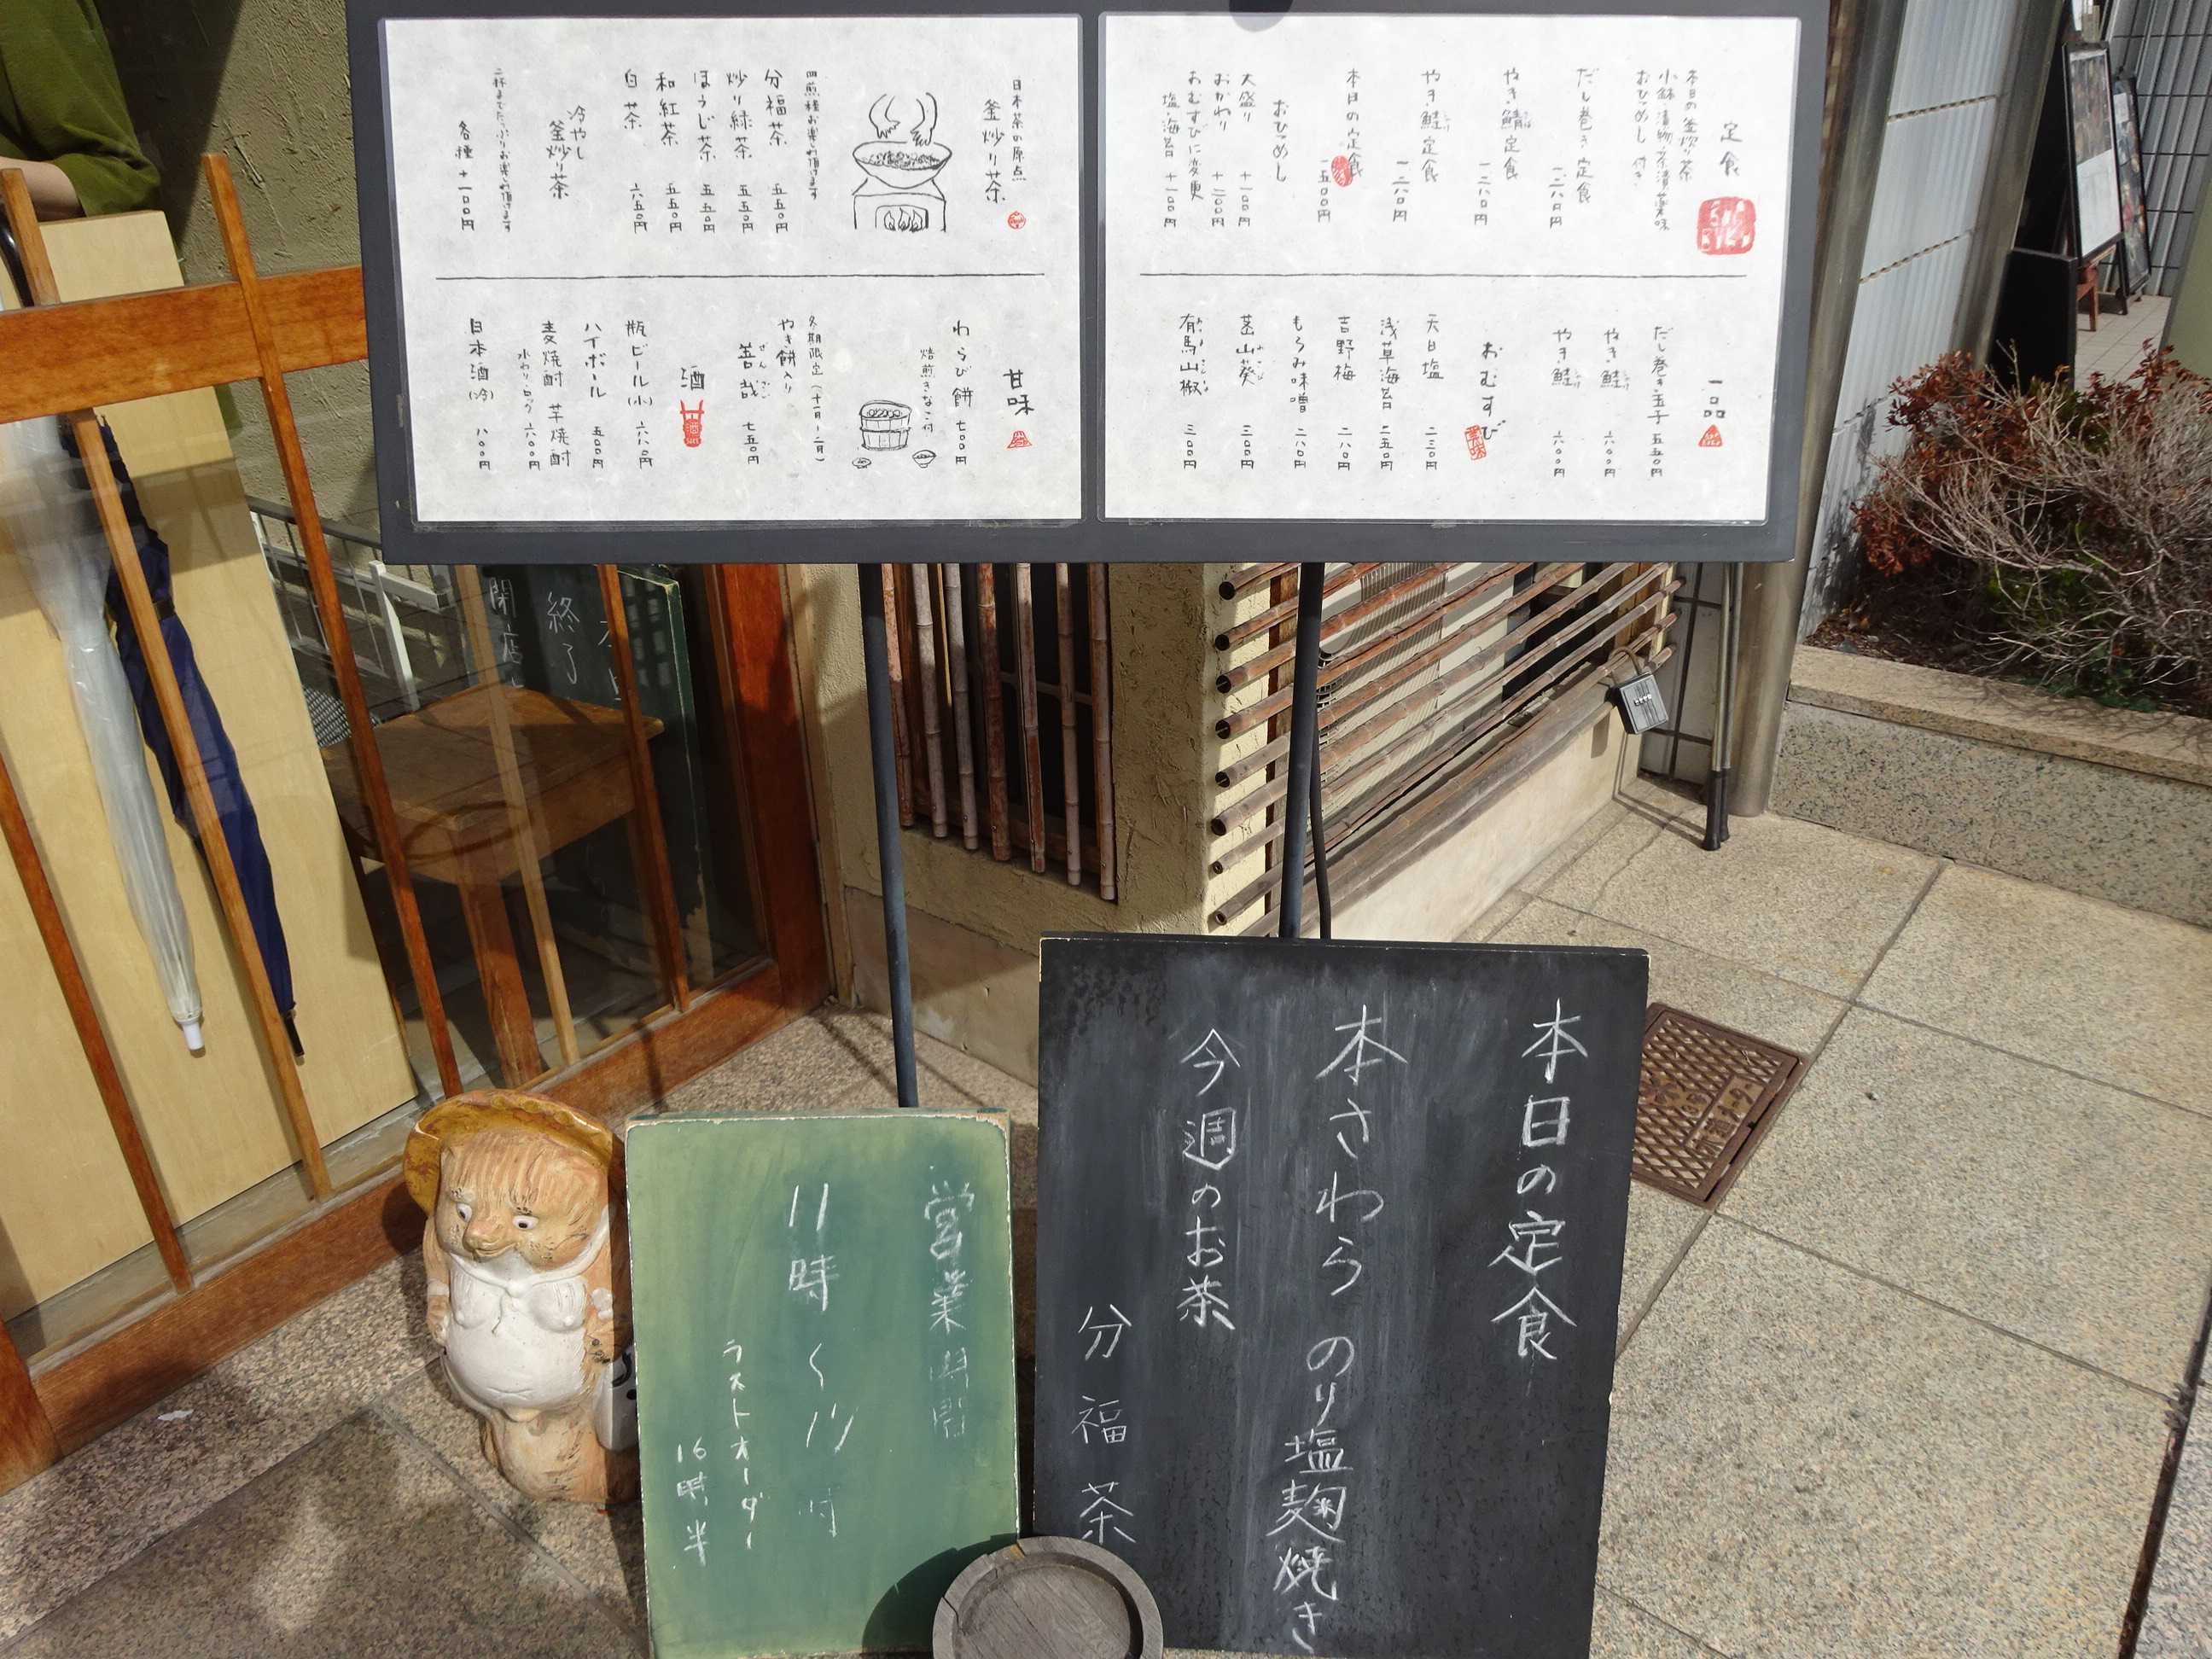 定食
本日の釜炒茶
小鉢・漬物・茶漬薬味
おひつめし 付き
だし巻き定食 一二八〇円
やき鯖定食 一二八〇円
やき鮭定食 一二八〇円
本日の定食 一五〇〇円
おひつめし
大盛り +一〇〇円
おかわり +二〇〇円
おむすびに変更
塩・海苔 +一〇〇円
一品
だし巻き玉子 五五〇円
やき鮭 六〇〇円
おむすび
天日塩 二三〇円
浅草海苔 二五〇円
吉野梅 二八〇円
もろみ味噌 二八〇円
茎山葵 三〇〇円
有馬山椒 三〇〇円
日本茶の原点
釜炒り茶
四煎種お楽しみ頂けます
分福茶 五五〇円
炒り緑茶 五五〇円
ほうじ茶 五五〇円
和紅茶 五五〇円
白茶 六五〇円
冷やし
釜炒り茶
二杯までたっぷりお楽しみ頂けます
各種 +一〇〇円
甘味
わらび餅 七〇〇円
焙煎きなこ付
冬期限定(十一月〜二月)
やき餅入り
善哉 七五〇円
ぜんざい
酒
瓶ビール(小) 六八〇円
ハイボール 五〇〇円
麦焼酎 芋焼酎
水わり・ロック 六〇〇円
日本酒(冷) 八〇〇円
終了
開店
本日の定食
本さわら のり塩麹焼き
今週のお茶
分福茶
営業時間
11時〜17時
ラストオーダー
16時半